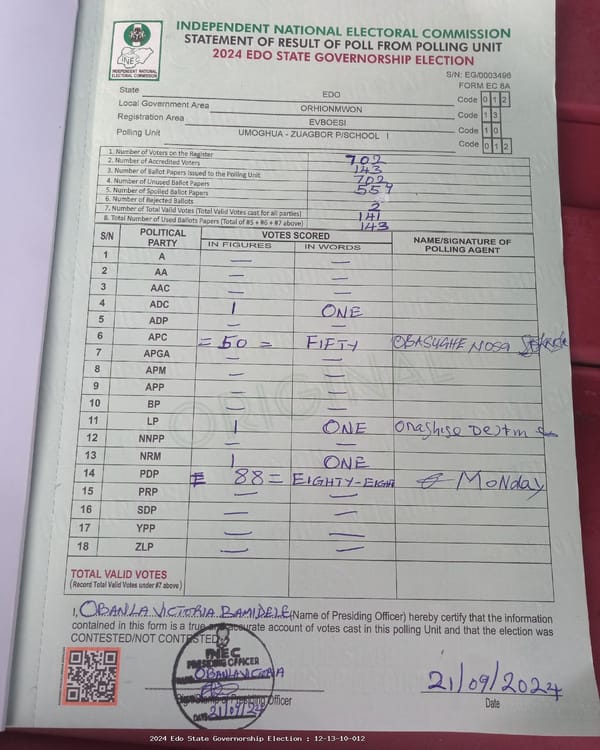 INDEPENDENT NATIONAL ELECTORAL COMMISSION
STATEMENT OF RESULT OF POLL FROM POLLING UNIT
2024 EDO STATE GOVERNORSHIP ELECTION
INEC
INDEPENDENT NATIONAL
ELECTORAL COMMISSION
S/N: EG/0003496
FORM EC 8A
State EDO Code 0 1 2
Local Government Area ORHIONMWON Code 1 3
Registration Area EVBOESI Code 1 0
Polling Unit UMOGHUA - ZUAGBOR P/SCHOOL I Code 0 1 2
1. Number of Voters on the Register 702
2. Number of Accredited Voters 143
3. Number of Ballot Papers Issued to the Polling Unit 702
4. Number of Unused Ballot Papers 559
5. Number of Spoiled Ballot Papers
6. Number of Rejected Ballots 2
7. Number of Total Valid Votes (Total Valid Votes cast for all parties) 141
8. Total Number of Used Ballots Papers (Total of #5 + #6 + #7 above) 143
S/N POLITICAL PARTY VOTES SCORED NAME/SIGNATURE OF POLLING AGENT
IN FIGURES IN WORDS
1 A — —
2 AA — —
3 AAC — —
4 ADC 1 ONE
5 ADP — —
6 APC = 50 = FIFTY OBASUGHE NOSA
7 APGA — —
8 APM — —
9 APP — —
10 BP — —
11 LP 1 ONE
12 NNPP — —
13 NRM 1 ONE
14 PDP = 88 = EIGHTY-EIGHT MONDAY
15 PRP — —
16 SDP — —
17 YPP — —
18 ZLP — —
ORIGINAL
TOTAL VALID VOTES
(Record Total Valid Votes under #7 above)
I, OBANLA VICTORIA BAMIDELE (Name of Presiding Officer) hereby certify that the information
contained in this form is a true and accurate account of votes cast in this polling Unit and that the election was
CONTESTED/NOT CONTESTED
INEC
PRESIDING OFFICER
OBANLA VICTORIA
DATE 21/09/24
Officer
21/09/2024
Date
2024 Edo State Governorship Election : 12-13-10-012